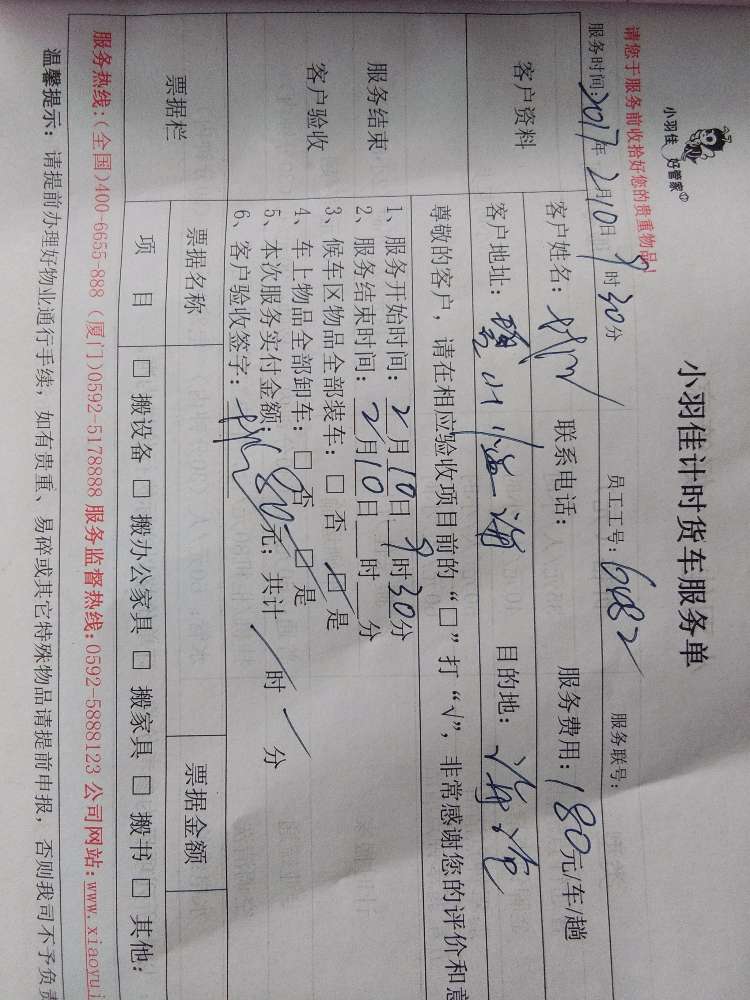 小羽佳 好管家
小羽佳计时货车服务单
请您于服务前收拾好您的贵重物品!
服务时间:2017年2月10日9时30分 员工工号:6182 服务联号:
客户资料
客户姓名: 联系电话: 服务费用:180元/车/趟
客户地址: 目的地:
尊敬的客户,请在相应验收项目前的“□”打“√”,非常感谢您的评价和意
服务结束
客户验收
1、服务开始时间:2月10日9时30分
2、服务结束时间:2月10日__时__分
3、候车区物品全部装车:□ 否 ☑ 是
4、车上物品全部卸车:□ 否 ☑ 是
5、本次服务实付金额:180元;共计 / 时 / 分
6、客户验收签字:
票据栏
票据名称 票据金额
项 目 □ 搬设备 □ 搬办公家具 □ 搬家具 □ 搬书 □ 其他:
服务热线:(全国)400-6655-888 (厦门)0592-5178888 服务监督热线:0592-5888123 公司网站:www.xiaoyuj
温馨提示:请提前办理好物业通行手续,如有贵重、易碎或其它特殊物品请提前申报,否则我司不予负责